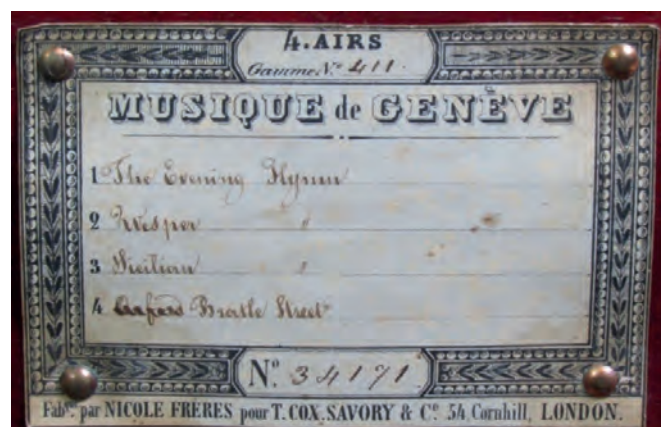 4.AIRS
Gamme N.º 411.
MUSIQUE de GENÈVE
1 The Evening Hymn
2 Vesper "
3 Sicilian "
4 Brattle Street
Nº. 34171
Fabés. par NICOLE FRÈRES pour T. COX. SAVORY & Cº. 54, Cornhill, LONDON.